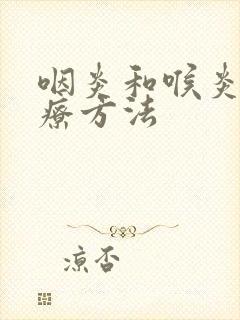 咽炎和喉炎
療方法
凉否